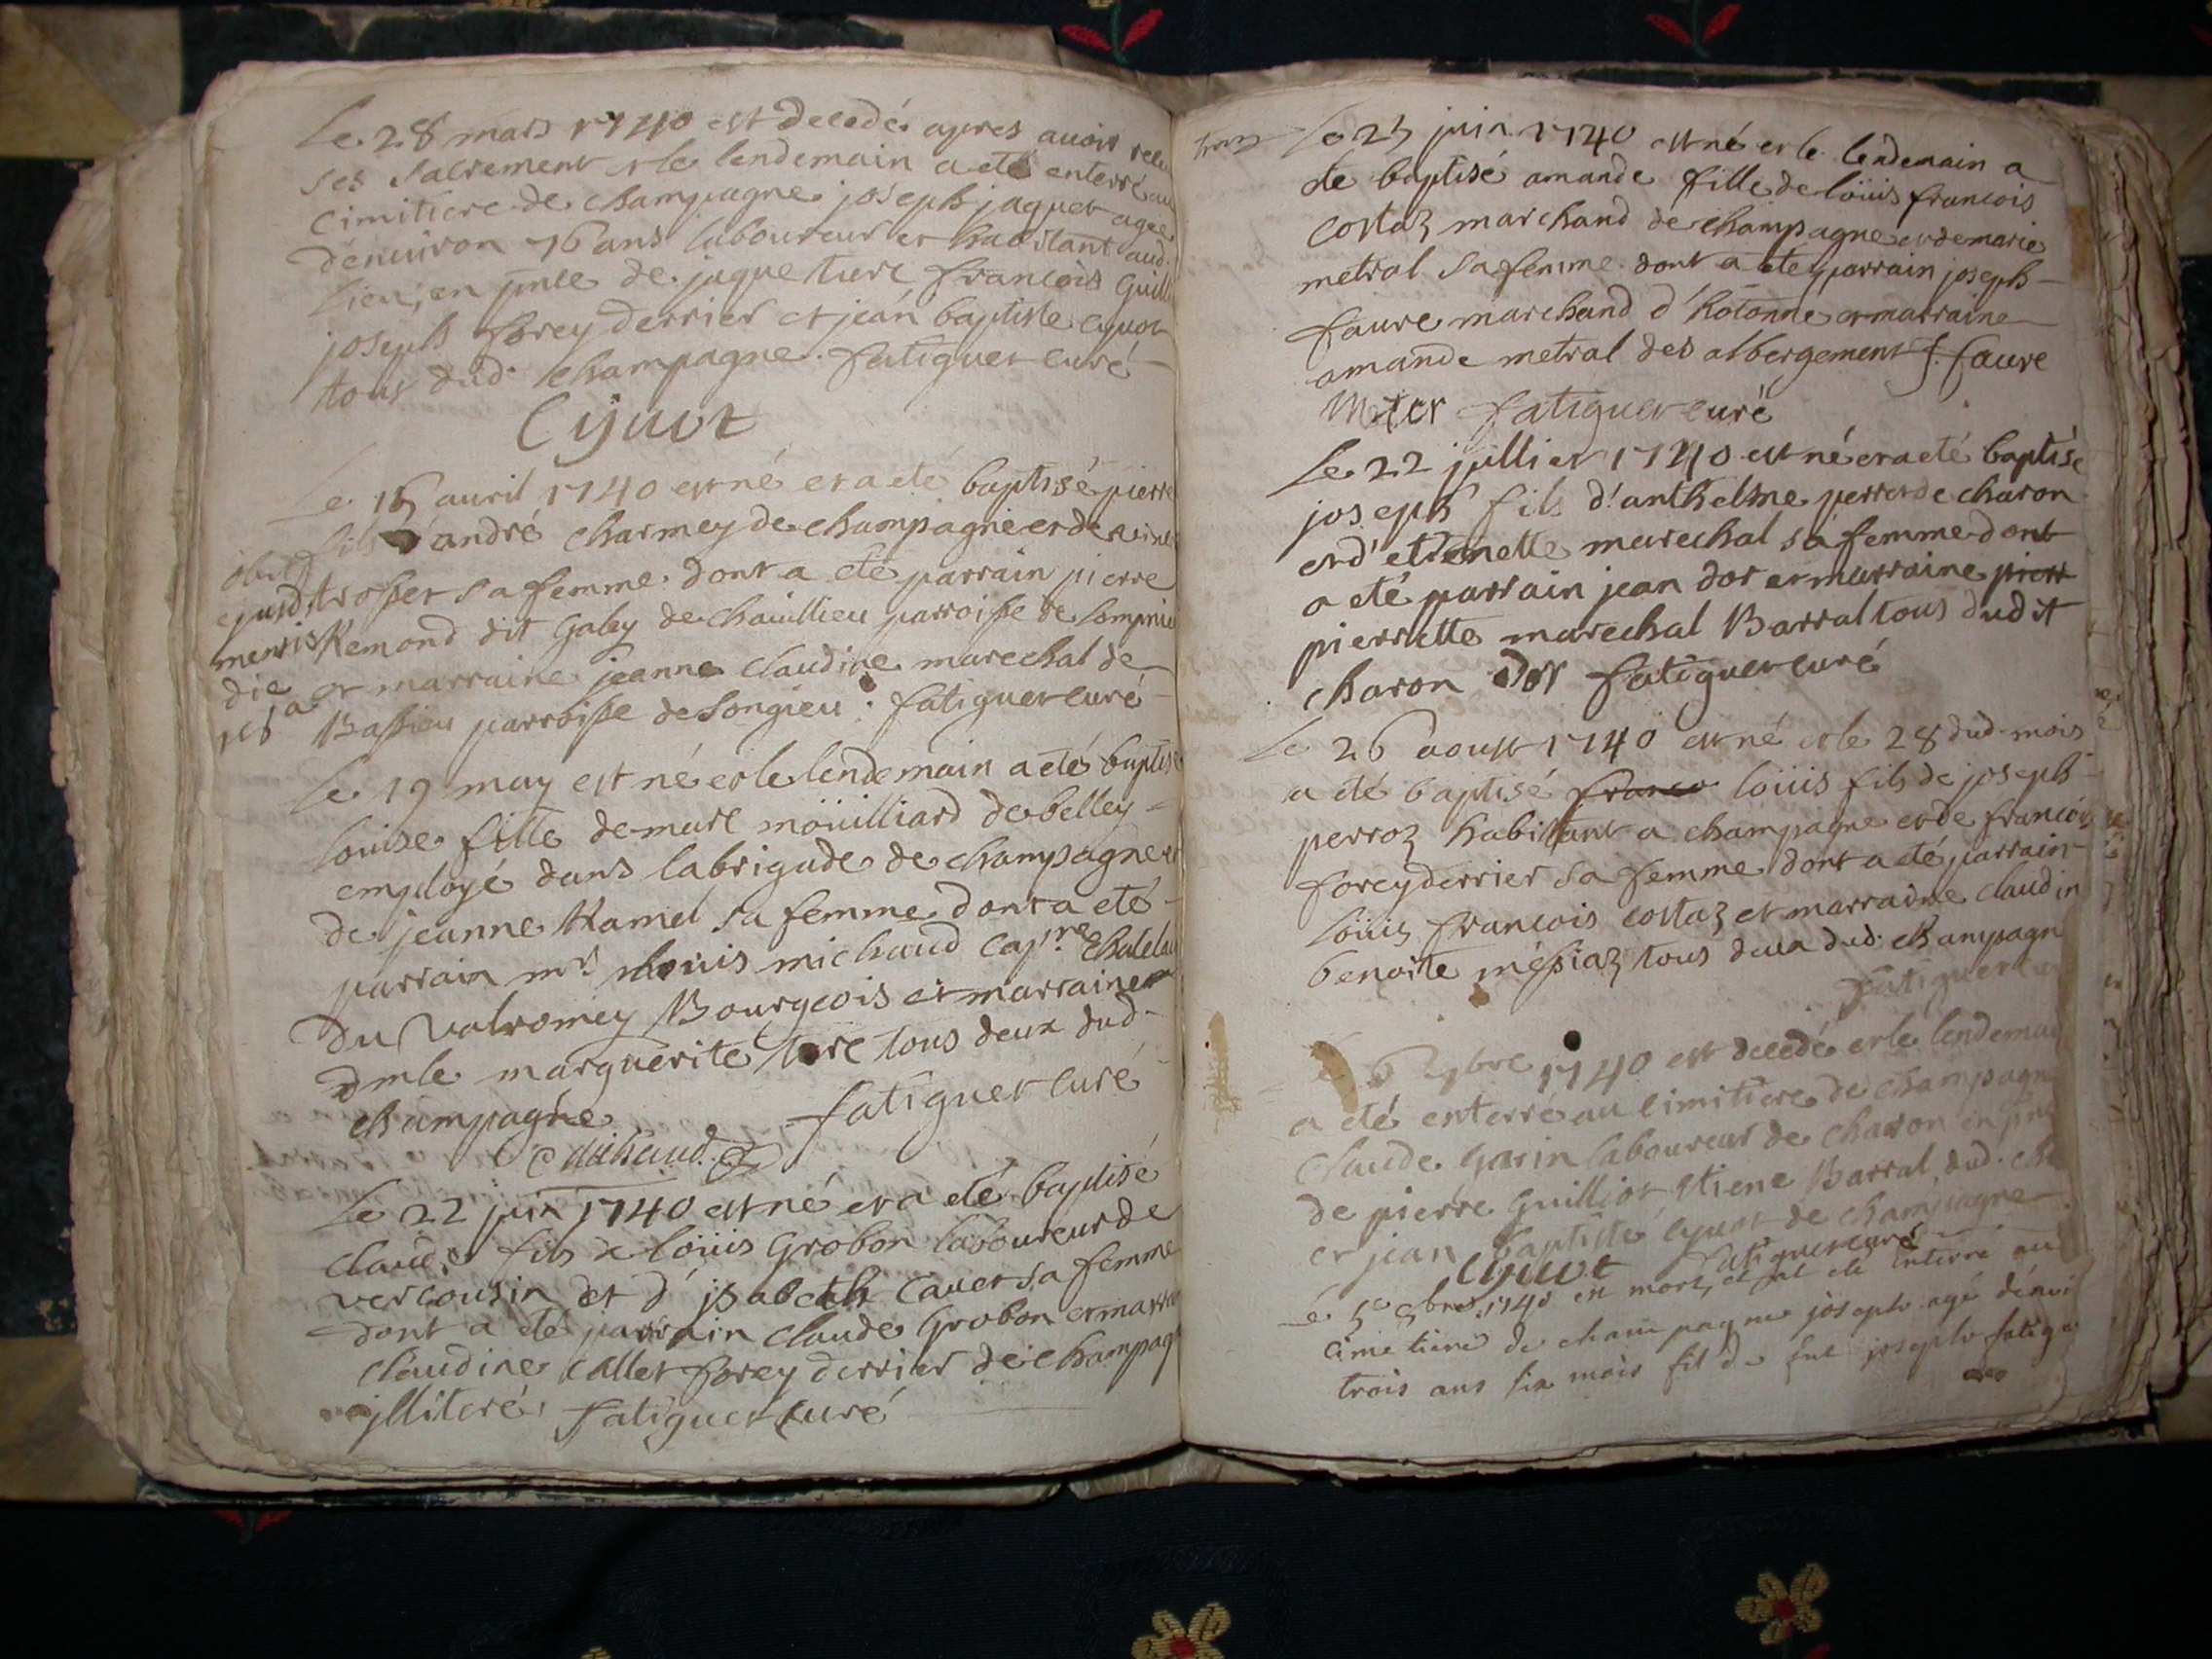 Le 28 mars 1740 est decedé apres avoir receu
ses sacrement et le lendemain a eté enterré au
cimitiere de champagne joseph jaquet agee
denuiron 76 ans laboureur et habitant aud.
lieu, en pnce de jaque ture francois Guill
joseph forey derrier et jean baptiste cyvot
tous dud. champagne. fatiguet curé
Cyvot
Le 15 auril 1740 est né et a eté baptisé pierre
fils d'andré charmey de champagne et de reine
trosset sa femme dont a eté parrain pierre
Remond dit Gaby de chauillieu parroisse de Lompnieu
et marraine jeanne claudine marechal de
Bassieu parroisse de Songieu. fatiguet curé
obiit
ejusd
mensis
die
Le 19 may est né et le lendemain a eté baptisé
louise fille de marc moüilliard de belley
employé dans la brigade de champagne et
de jeanne Ramel sa femme dont a eté
parrain mr. louis michaud cap.ne chatelain
du Valromey Bourgeois et marraine
dmle marguerite ture tous deux dud.
champagne fatiguet curé
michaud
Le 22 juin 1740 est né et a eté baptisé
claude fils de loüis Grobon laboureur de
vercousin et d'isabeth cavet sa femme
dont a eté parrain claude Grobon et marraine
claudine callet forey derrier de champagne
jlliteré, fatiguet curé
Le 25 juin 1740 est né et le lendemain a
ete baptisé amande fille de loüis francois
costaz marchand de champagne et de marie
metral sa femme dont a ete parrain joseph
faure marchand d'hotonne et marraine
amande metral des albergement J. faure
fatiguet curé
Le 22 jullier 1740 est né et a eté baptisé
joseph fils d'anthelme perret de charon
et d'etienette marechal sa femme dont
a eté parrain jean dor et marraine pierr
pierrette marechal Barral tous dudit
charon Dor fatiguet curé
Le 26 aoust 1740 est né et le 28 dud. mois
a eté baptisé franco loüis fils de joseph
perroz habitant a champagne et de francoise
forey derrier sa femme dont a eté parrain
loüis francois costaz et marraine claudin
benoite mépiaz tous deux dud. champagn
fatiguet cu
Le 6 7bre 1740 est decedé et le lendemai
a eté enterré au cimitiere de champagne
claude Garin laboureur de charon en pnce
de pierre Guilliot etiene Barral dud. cha
et jean baptiste cyvot de champagne
Cyvot fatiguet curé
Le 5e 9bre 1740 est mort, et at ete enterré au
cimetiere de champagne joseph agé d'envi
trois ans six mois fil de feu joseph fatigu